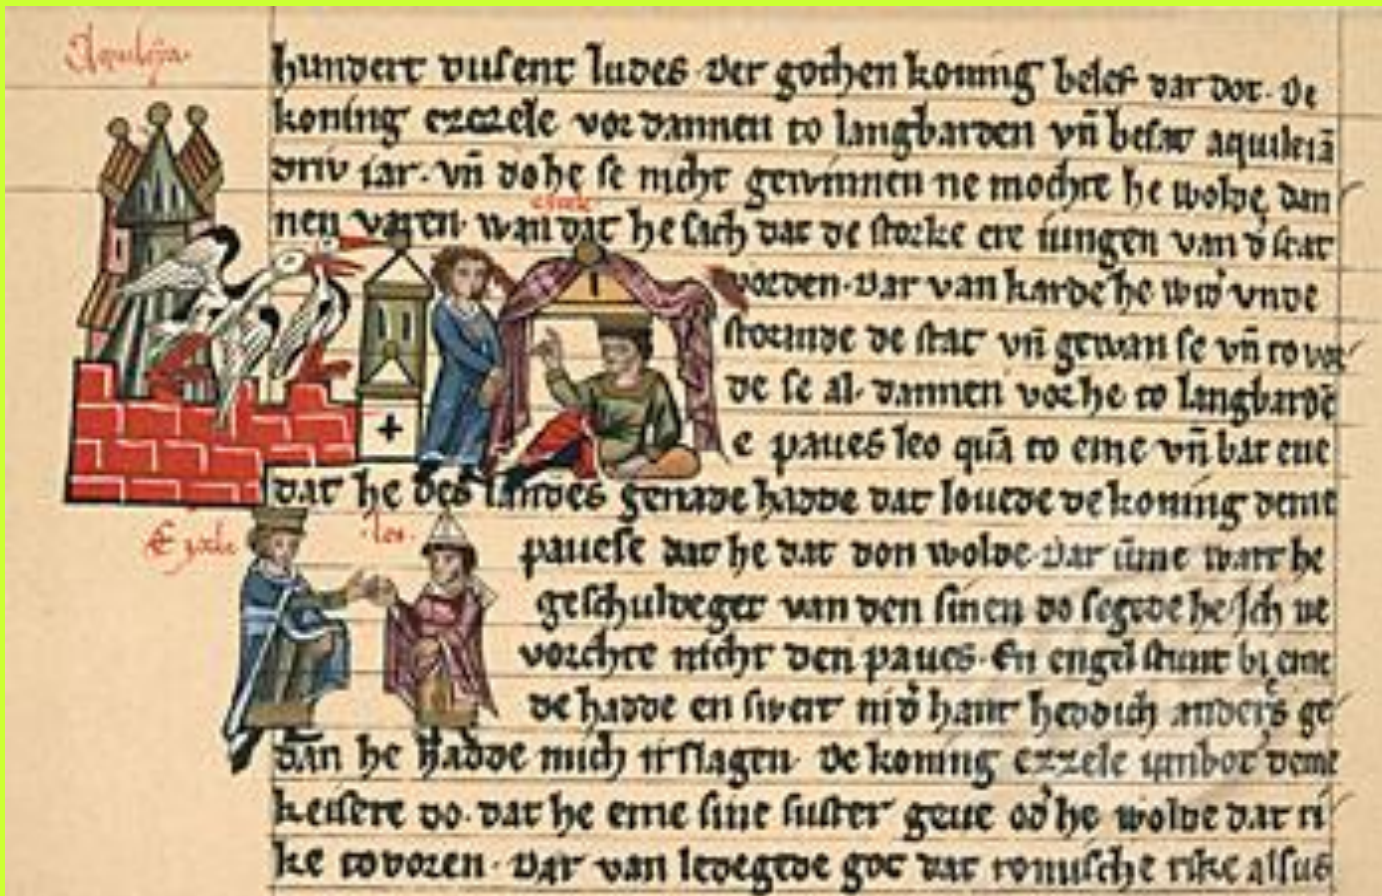 Aquileja.
hundert dusent ludes. Der gothen koning belef dar dot. De
koning ezzele vor dannen to langbarden vn̄ besat aquileiā
driv iar. vn̄ do he se nicht gewinnen ne mochte he wolde dan
nen varen. wan dat he sach dat de storke ere iungen van d' stat
vorden. Dar van karde he wid' vnde
stormde de stat vn̄ gewan se vn̄ to vor
de se al. dannen vor he to langbardē
e paues leo quā to eme vn̄ bat ene
dat he des landes genade hadde dat louede de koning deme
Ezzele leo.
pauese dat he dat don wolde. Dar ūme wart he
geschuldeget van den sinen do segede he Ich ne
vorchte nicht den paues. En engel stunt bi eme
de hadde en swert in d' hant heddich anders ge
dan he hadde mich irslagen. De koning ezzele unbot deme
keisere do. dat he eme sine suster geue od' he wolde dat ri
ke tovoren. Dar van ledegede got dat romische rike alsus